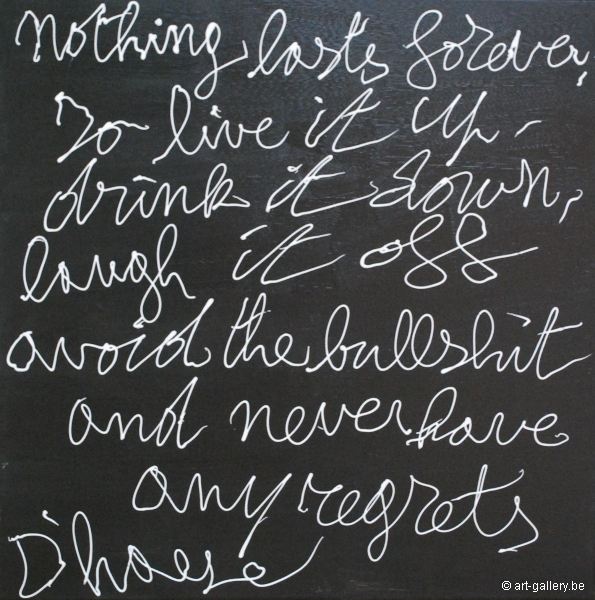 nothing lasts forever,
So live it up -
drink it down,
laugh it off
avoid the bullshit
and never have
any regrets
D'haese
© art-gallery.be